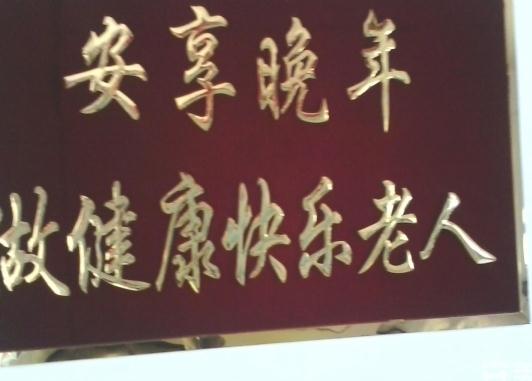 安享晚年
做健康快乐老人